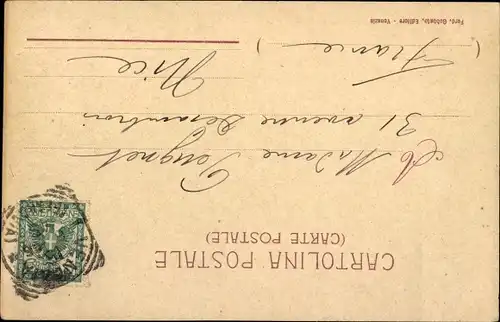 CARTOLINA POSTALE
(CARTE POSTALE)
A Madame
31 avenue
Nice
( France )
Ferd. Gobbato, Editore - Venezia